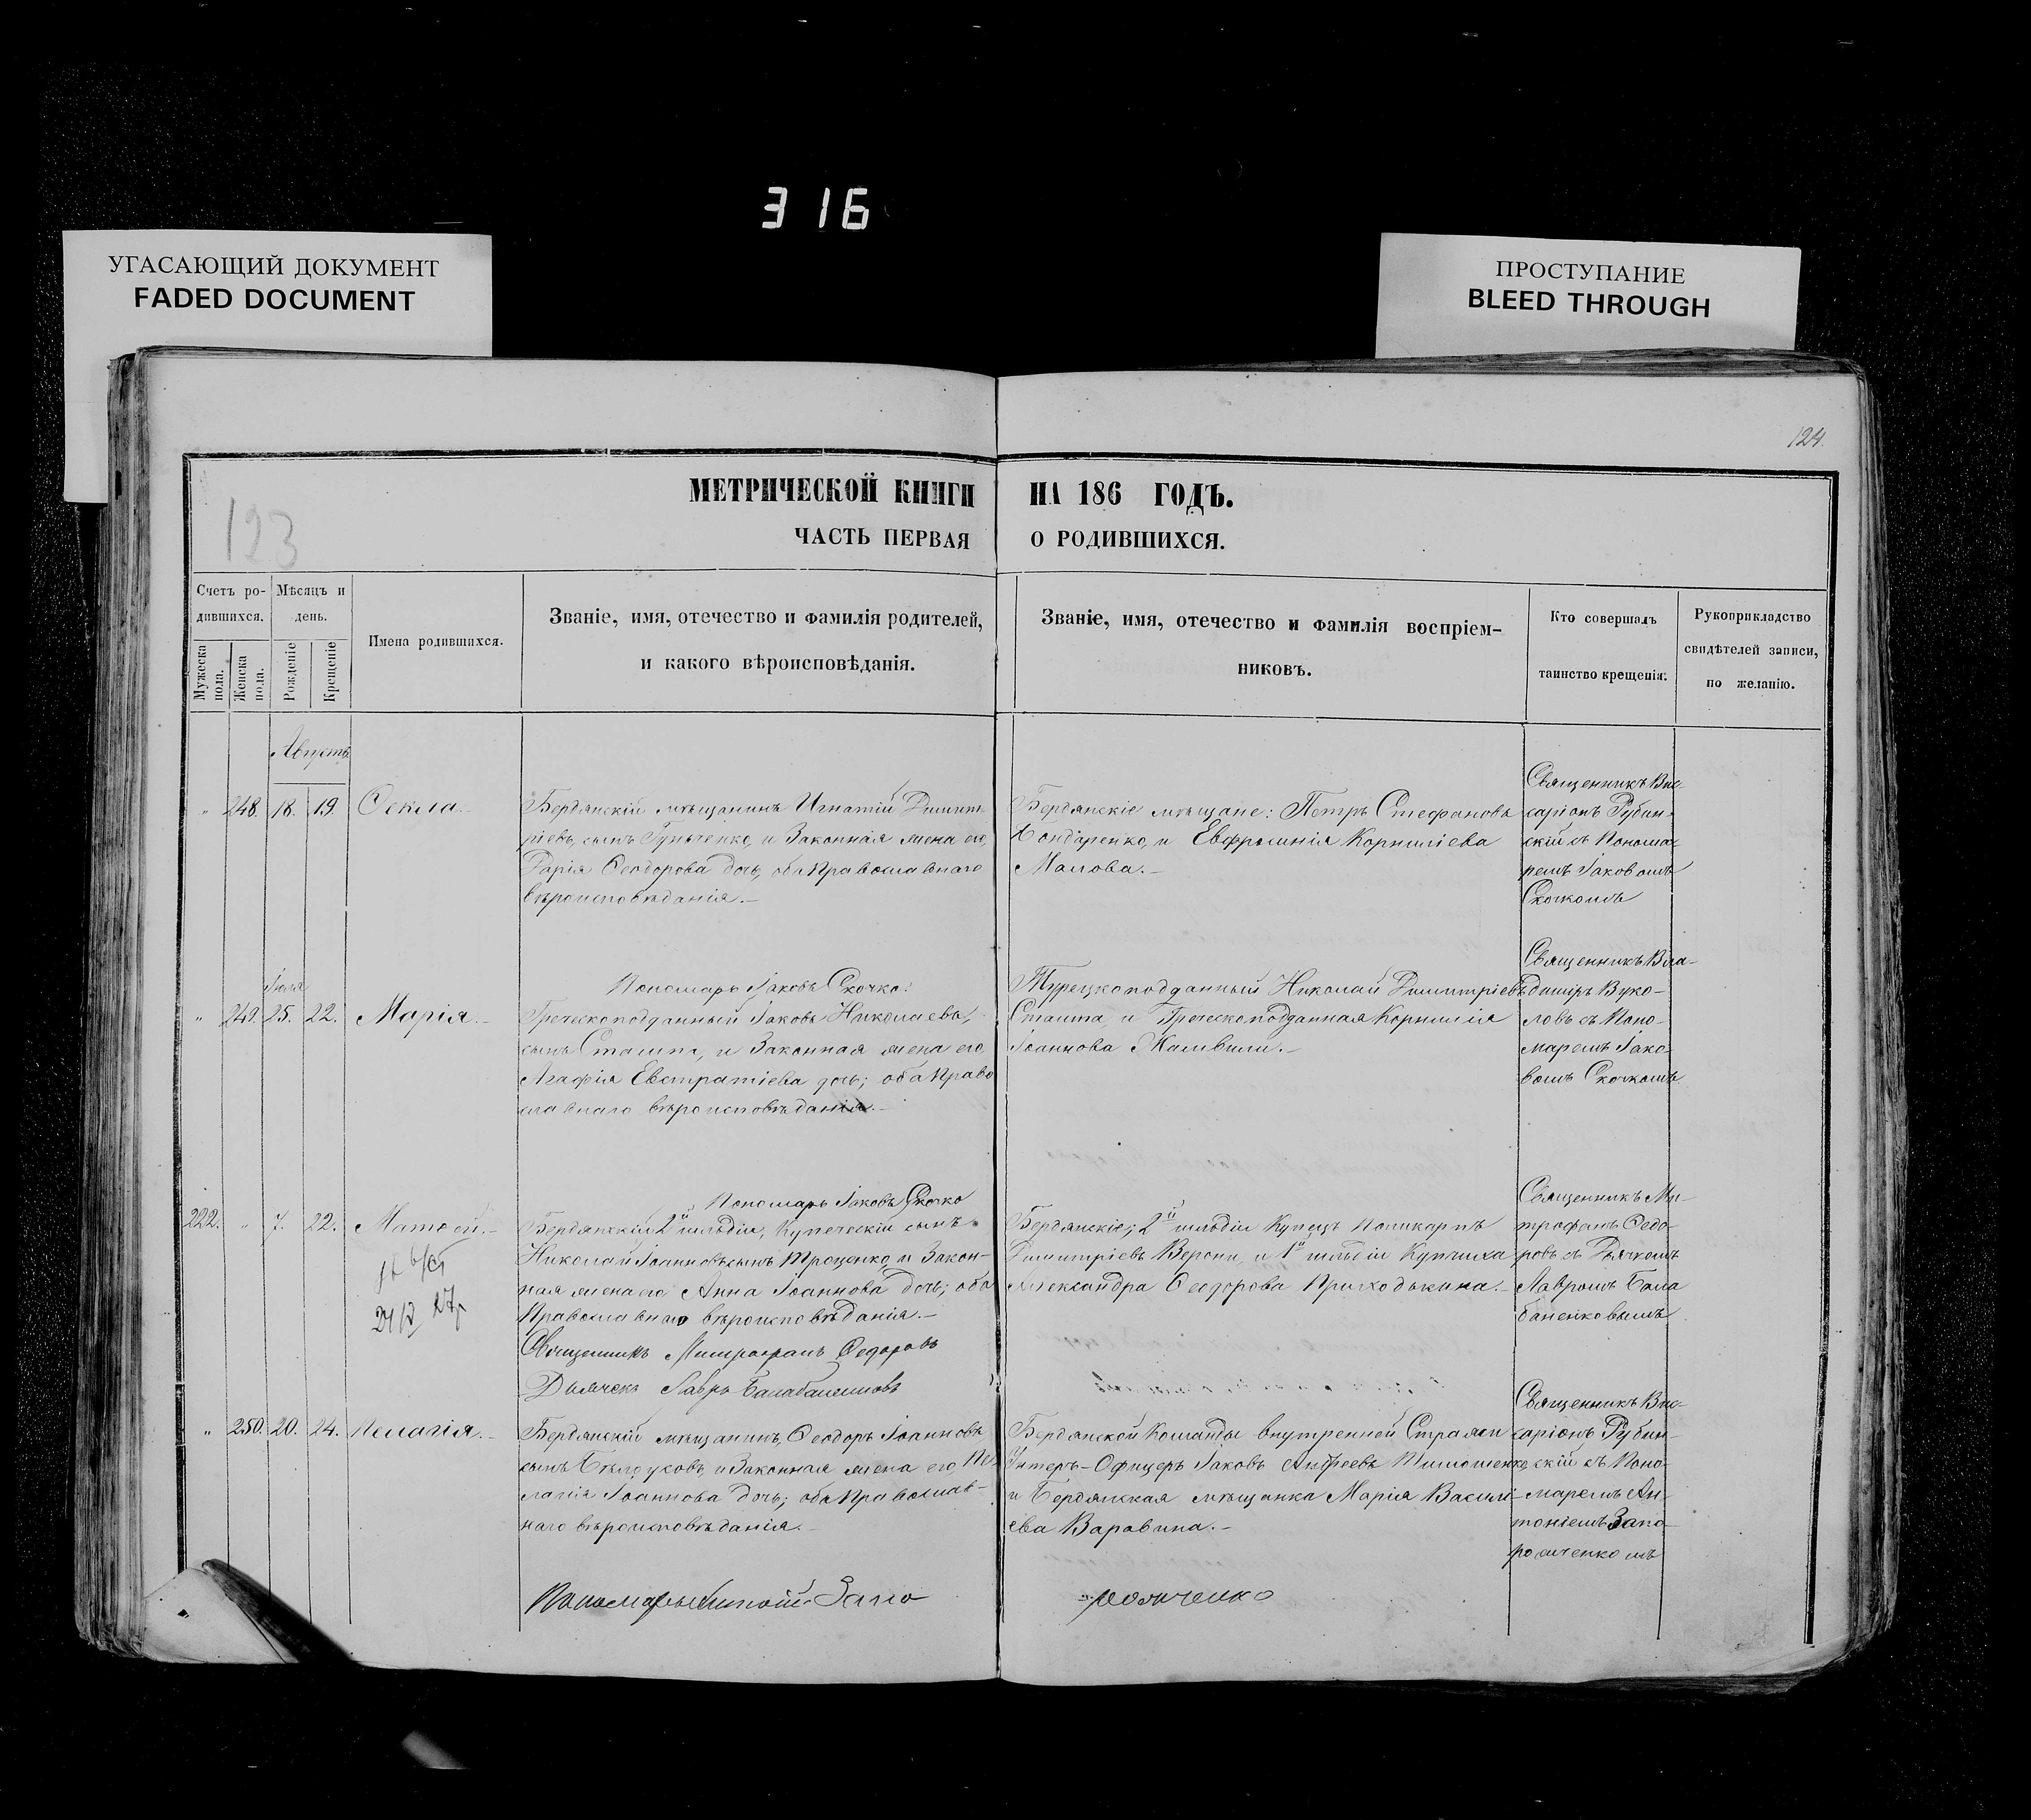 316
УГАСАЮЩИЙ ДОКУМЕНТ
FADED DOCUMENT
ПРОСТУПАНИЕ
BLEED THROUGH
124
123
МЕТРИЧЕСКОЙ КНИГИ НА 186 ГОДЪ.
ЧАСТЬ ПЕРВАЯ О РОДИВШИХСЯ.
Счетъ ро-
дившихся.
Мужеска пола.
Женска пола.
Мѣсяцъ и
день.
Рожденіе
Крещеніе
Имена родившихся.
Званіе, имя, отечество и фамилія родителей,
и какого вѣроисповѣданія.
Званіе, имя, отечество и фамилія воспріем-
никовъ.
Кто совершалъ
таинство крещенія.
Рукоприкладство
свидѣтелей записи,
по желанію.
Августъ
" 248. 18. 19. Ѳекла.
Бердянскій мѣщанинъ Игнатій Димит-
ріевъ сынъ и Законная жена его,
Дарія Ѳеодорова дочь, оба Православнаго
вѣроисповѣданія.—
Бердянскіе мѣщане: Петръ Стефановъ
Бондаренко, и Евфросинія Корниліева
Священникъ Вис-
саріонъ Рубин-
скій съ Понома-
ремъ Іаковомъ
Скочкомъ
Пономарь Іаковъ Скочко.
" 249. 25. 22. Марія.—
Греческоподданный Іаковъ Николаевъ,
сынъ и Законная жена его
Агафія Евстратіева дочь; оба Право
славнаго вѣроисповѣданія.—
Турецкоподданный Николай Димитріевъ
и Греческоподданная Корнилія
Іоаннова
Священникъ Вла-
диміръ Вуко-
ловъ съ Поно-
маремъ Іако-
вомъ Скочкомъ
Пономарь Іаковъ Скочко
222. " 7. 22. Матѳей.—
Бердянскій 2й гильдіи, Купеческій сынъ
Николай Іоанновъ сынъ Троценко, и Закон-
ная жена его Анна Іоаннова дочь; оба
Православнаго вѣроисповѣданія.—
Священникъ Митрофанъ Ѳедоровъ
Дьячекъ Лавръ
Бердянскіе; 2й гильдіи Купецъ Поликарпъ
Димитріевъ и 1й гильдіи Купчиха
Александра Ѳеодорова Приходькина.—
Священникъ Ми-
трофанъ Ѳедо-
ровъ съ Дьячкомъ
Лавромъ Бала
баненковымъ
" 250. 20. 24. Пелагія.—
Бердянскій мѣщанинъ, Ѳеодоръ Іоанновъ
сынъ и Законная жена его, Пе-
лагія Іоаннова дочь; оба Православ-
наго вѣроисповѣданія.—
Бердянской Команды внутренней Стражи
Унтеръ-Офицеръ Іаковъ Андреевъ Тимошенко,
и Бердянская мѣщанка Марія Василі-
ева Варавина.—
Священникъ Вис-
саріонъ Рубин-
скій съ Поно-
маремъ Ан-
тоніемъ Запо-
рожченкомъ
Пономарь Антоній Запо
рожченко